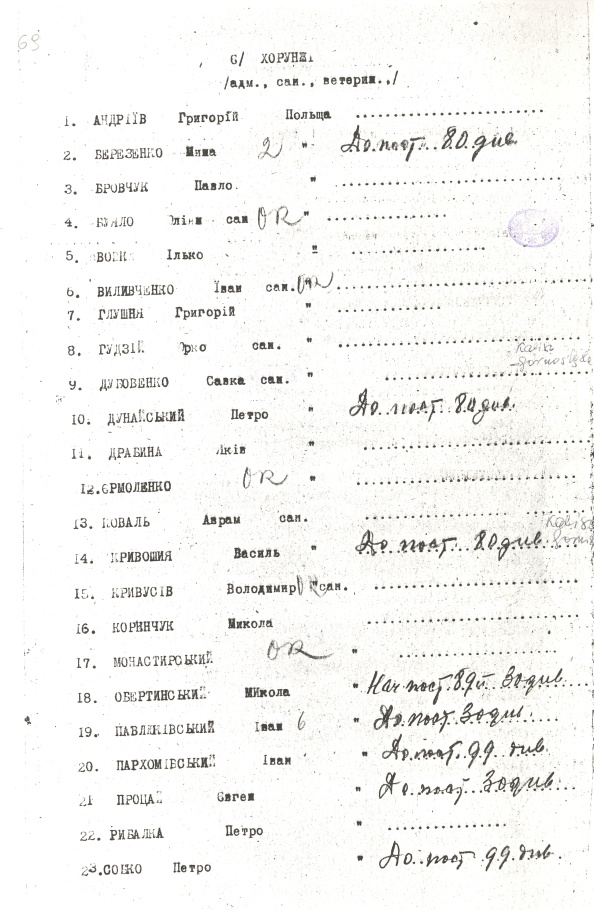 69
6/ ХОРУНЖІ
/адм., сан., ветерин../
1. АНДРІЇВ Григорій Польща ........................
2. БЕРЕЗЕНКО Миша 2 " До пост. 8.0. див.
3. БРОВЧУК Павло. " ........................
4. БУЯЛО сан OR " ...............
5. Ілько " .................
6. ВИЛИВЧЕНКО Іван сан. OR " ........................
7. ГЛУШНЯ Григорій " ...............
8. ГУДЗІЙ Юрко сан. " ........................
Kalia
9. ДУБОВЕНКО Савка сан. " ........................
10. ДУНАЙСЬКИЙ Петро " До. пост. 8.0 див.
11. ДРАБИНА Яків " ........................
12. ЄРМОЛЕНКО OR " ........................
13. КОВАЛЬ Аврам сан. ........................
14. КРИВОШИЯ Василь " До пост. 8.0. див.
15. КРИВУСІВ Володимир OR "сан. ........................
16. КОРИНЧУК Микола ........................
17. МОНАСТИРСЬКИЙ OR " ...............
18. ОБЕРТИНСЬКИЙ МИкола " Нач. пост. 8.9 й 3о див.
19. ПАВЛЯКІВСЬКИЙ Іван 6 " До. пост 3о див.
20. ПАРХОМІВСЬКИЙ Іван " До. пост. 9.9. див.
21 ПРОЦАЙ Євген " До. пост 3о див.
22. РИБАЛКА Петро " ...............
23.СОБКО Петро " До. пост 9.9. див.